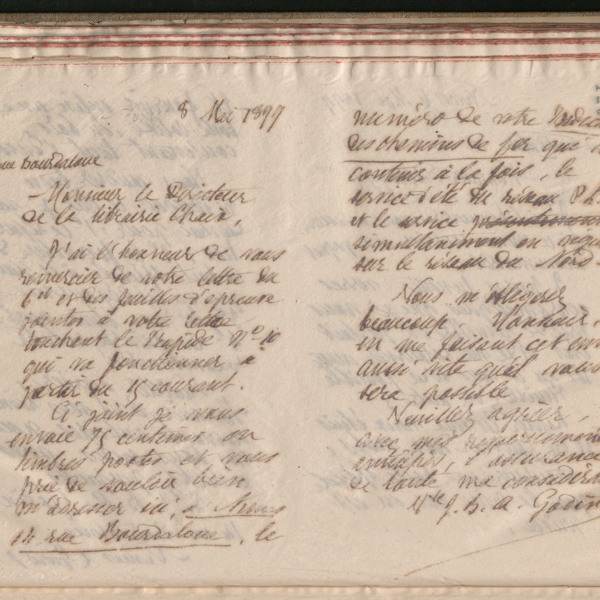 8 Mai 1899
rue Bourdaloue
Monsieur le Directeur
de la librairie Chaix,
J'ai l'honneur de vous
remercier de votre lettre du
6 et et des feuilles d'épreuve
jointes à votre lettre
touchant le rapide N° 10
qui va fonctionner à
partir du 15 courant.
Ci joint je vous
envoie 75 centimes en
timbres postes et vous
prie de vouloir bien
m'adresser ici, à Nimes
14 rue Bourdaloue, le
numéro de votre
des chemins de fer que
contient à la fois, le
service d'été du réseau P.L.
et le service
simultanément en
sur le réseau du Nord
Vous m'obligerez
beaucoup, Monsieur,
en me faisant cet
aussi vite qu'il vous
sera possible
Veuillez agréer,
avec mes remerciements
anticipés, l'assurance
de toute ma considération
J. B. A. Godin